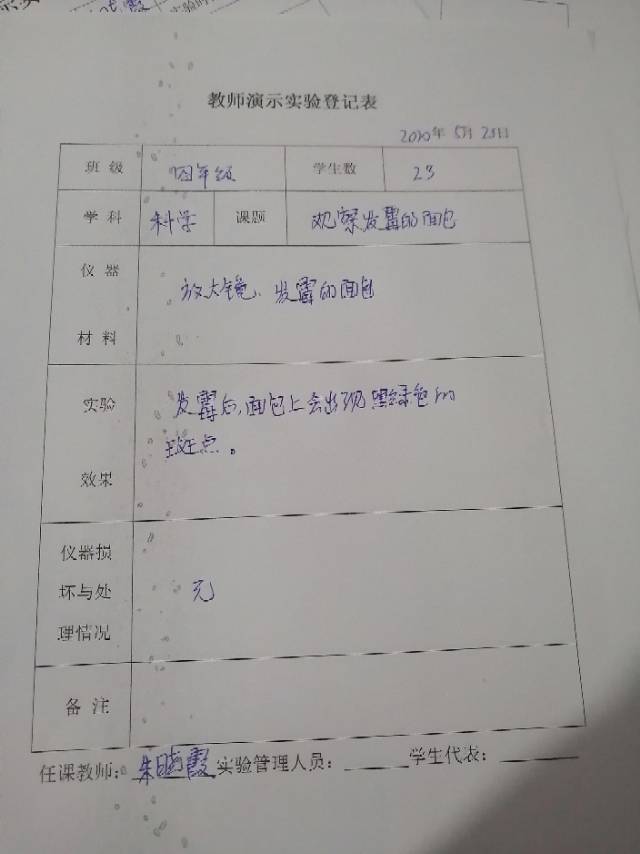 教师演示实验登记表
2020年5月25日
班级 四年级 学生数 23
学科 科学 课题 观察发霉的面包
仪器 放大镜、发霉的面包
材料
实验 发霉后,面包上会出现黑绿色的
斑点。
效果
仪器损
坏与处 无
理情况
备注
任课教师:朱晓霞 实验管理人员: 学生代表: